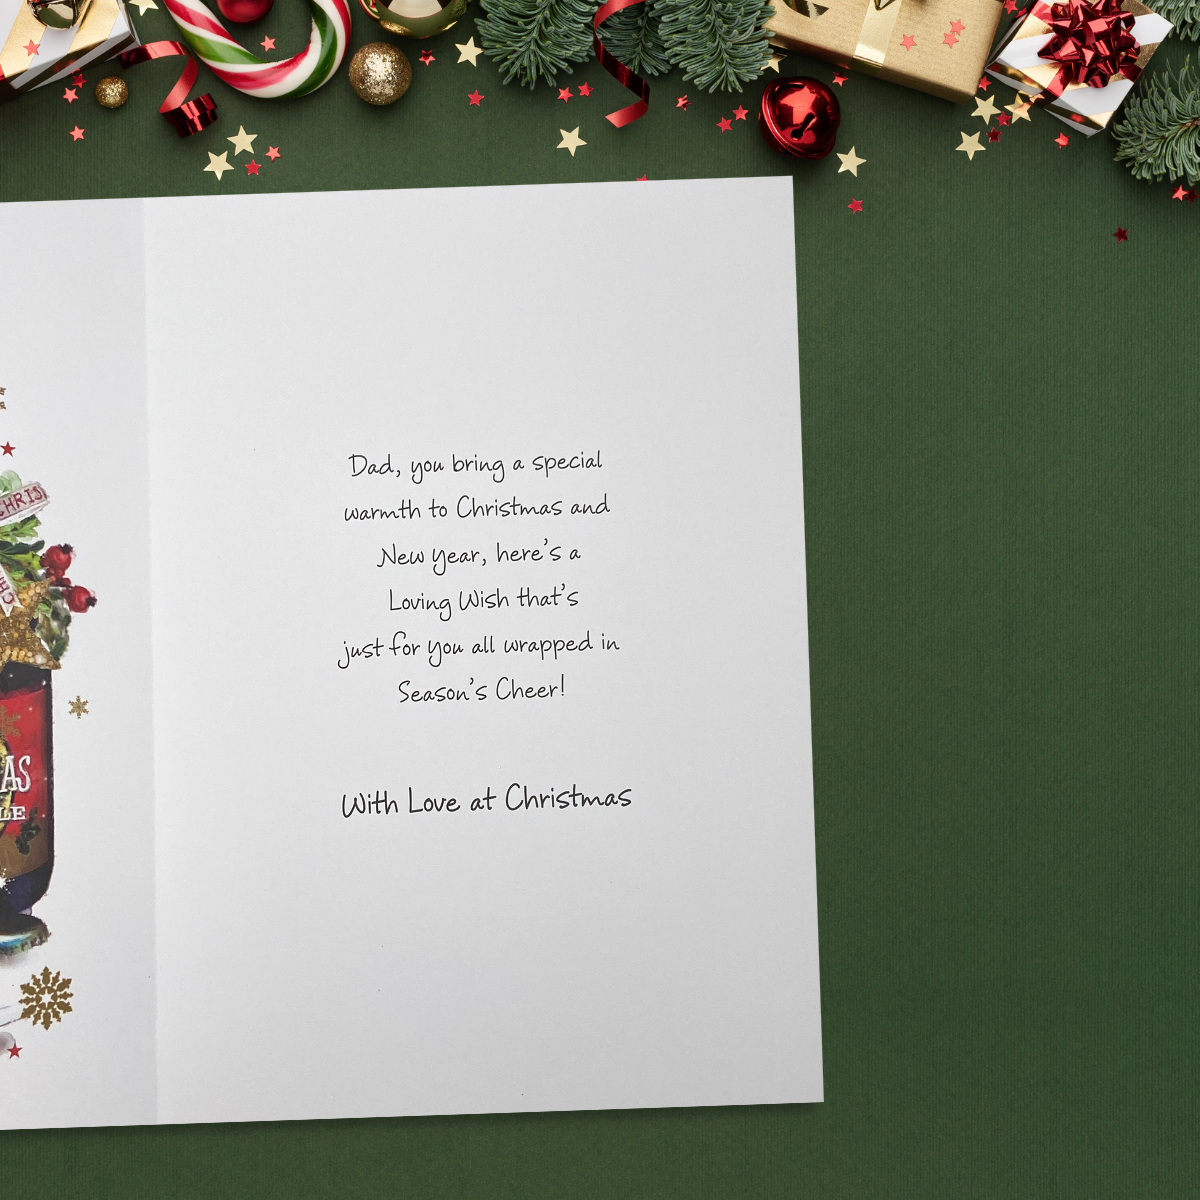 CHRIS
CHE
AS
LE
Dad, you bring a special
warmth to Christmas and
New Year, here's a
Loving Wish that's
just for you all wrapped in
Season's Cheer!
With Love at Christmas